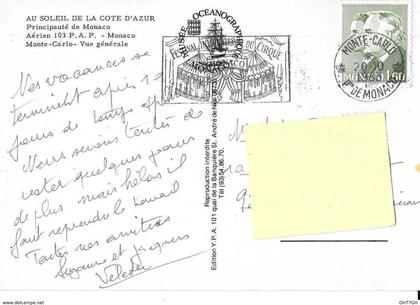 AU SOLEIL DE LA COTE D'AZUR
Principauté de Monaco
Aérien 103 P.A.P. - Monaco
Monte-Carlo- Vue générale
Nos vacances se
terminent après 1
jours de temps
Nous serions tentés de
rester quelques jours
de plus mais hélas il
faut reprendre le travail
Toutes nos amitiés
Suzanne et Jacques
MUSÉE OCEANOGRAPHIQUE
MONACO
FESTIVAL INTERNATIONAL DU CIRQUE
MONTE-CARLO
PTE DE MONACO
1,50
Reproduction interdite
Edition Y.P.A. 101 quai de la Banquière St. André de Nice
Tél (93) 54.86.70.